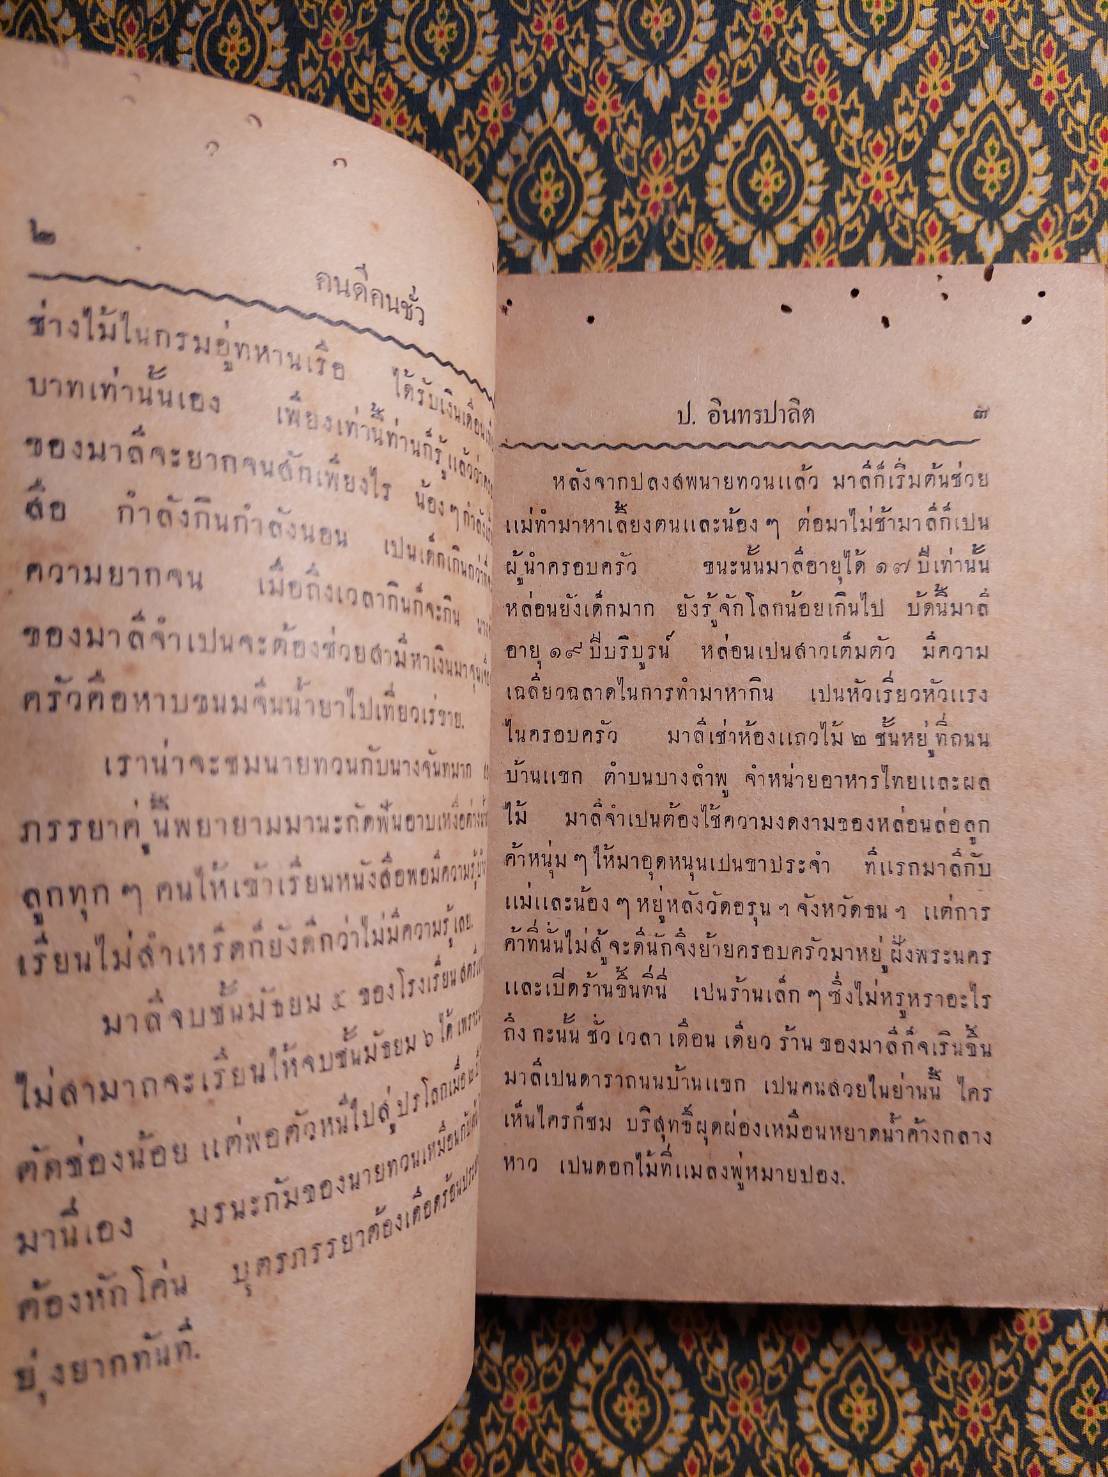 ๒
คนดีคนชั่ว
ช่างไม้ในกรมอู่ทหานเรือ ได้รับเงินเดือน
บาทเท่านั้นเอง เพียงเท่านี้ท่านก็รู้แล้วว่า
ของมาลีจะยากจนสักเพียงไร น้องๆกำลัง
สือ กำลังกินกำลังนอน เปนเด็กเกินกว่าที่
ความยากจน เมื่อถึงเวลากินก็จะกิน
ของมาลีจำเปนจะต้องช่วยสามีหาเงินมาจุน
ครัวคือหาบขนมจีนน้ำยาไปเที่ยวเร่ขาย.
เราน่าจะชมนายทวนกับนางจันทมาก
ภรรยาคู่นี้พยายามมานะกัดฟันอาบเหงื่อต่าง
ลูกทุกๆคนให้เข้าเรียนหนังสือพอมีความรู้
เรียนไม่สำเหร็ดก็ยังดีกว่าไม่มีความรู้เลย.
มาลีจบชั้นมัธยม ๕ ของโรงเรียนสตรี
ไม่สามาถจะเรียนให้จบชั้นมัธยม ๖ ได้ เพราะ
คัดช่องน้อยแต่พอตัวหนีไปสู่ปรโลกเมื่อ
มานี่เอง มรนะกัมของนายทวนเหมือนกับ
ต้องหักโค่น บุตรภรรยาต้องเดือดร้อน
ยุ่งยากทันที.
ป. อินทรปาลิต ๓
หลังจากปลงสพนายทวนแล้ว มาลีก็เริ่มต้นช่วย
แม่ทำมาหาเลี้ยงตนและน้องๆ ต่อมาไม่ช้ามาลีก็เปน
ผู้นำครอบครัว ขนะนั้นมาลีอายุได้ ๑๗ ปีเท่านั้น
หล่อนยังเด็กมาก ยังรู้จักโลกน้อยเกินไป บัดนี้มาลี
อายุ ๑๙ ปีบริบูรน์ หล่อนเปนสาวเต็มตัว มีความ
เฉลียวฉลาดในการทำมาหากิน เปนหัวเรี่ยวหัวแรง
ในครอบครัว มาลีเช่าห้องแถวไม้ ๒ ชั้นหยู่ที่ถนน
บ้านแขก ตำบนบางลำพู จำหน่ายอาหารไทยและผล
ไม้ มาลีจำเปนต้องไช้ความงดงามของหล่อนล่อลูก
ค้าหนุ่มๆให้มาอุดหนุนเปนขาประจำ ทีแรกมาลีกับ
แม่และน้องๆหยู่หลังวัดอรุนฯ จังหวัดธนฯ แต่การ
ค้าที่นั่นไม่สู้จะดีนักจึงย้ายครอบครัวมาหยู่ฝั่งพระนคร
และเปิดร้านขึ้นที่นี่ เปนร้านเล็กๆซึ่งไม่หรูหราอะไร
ถึง กะนั้น ชั่ว เวลา เดือน เดียว ร้าน ของมาลีก็จเรินขึ้น
มาลีเปนดาราถนนบ้านแขก เปนคนสวยในย่านนี้ ไคร
เห็นไครก็ชม บริสุทธิ์ผุดผ่องเหมือนหยาดน้ำค้างกลาง
หาว เปนดอกไม้ที่แมลงพู่หมายปอง.